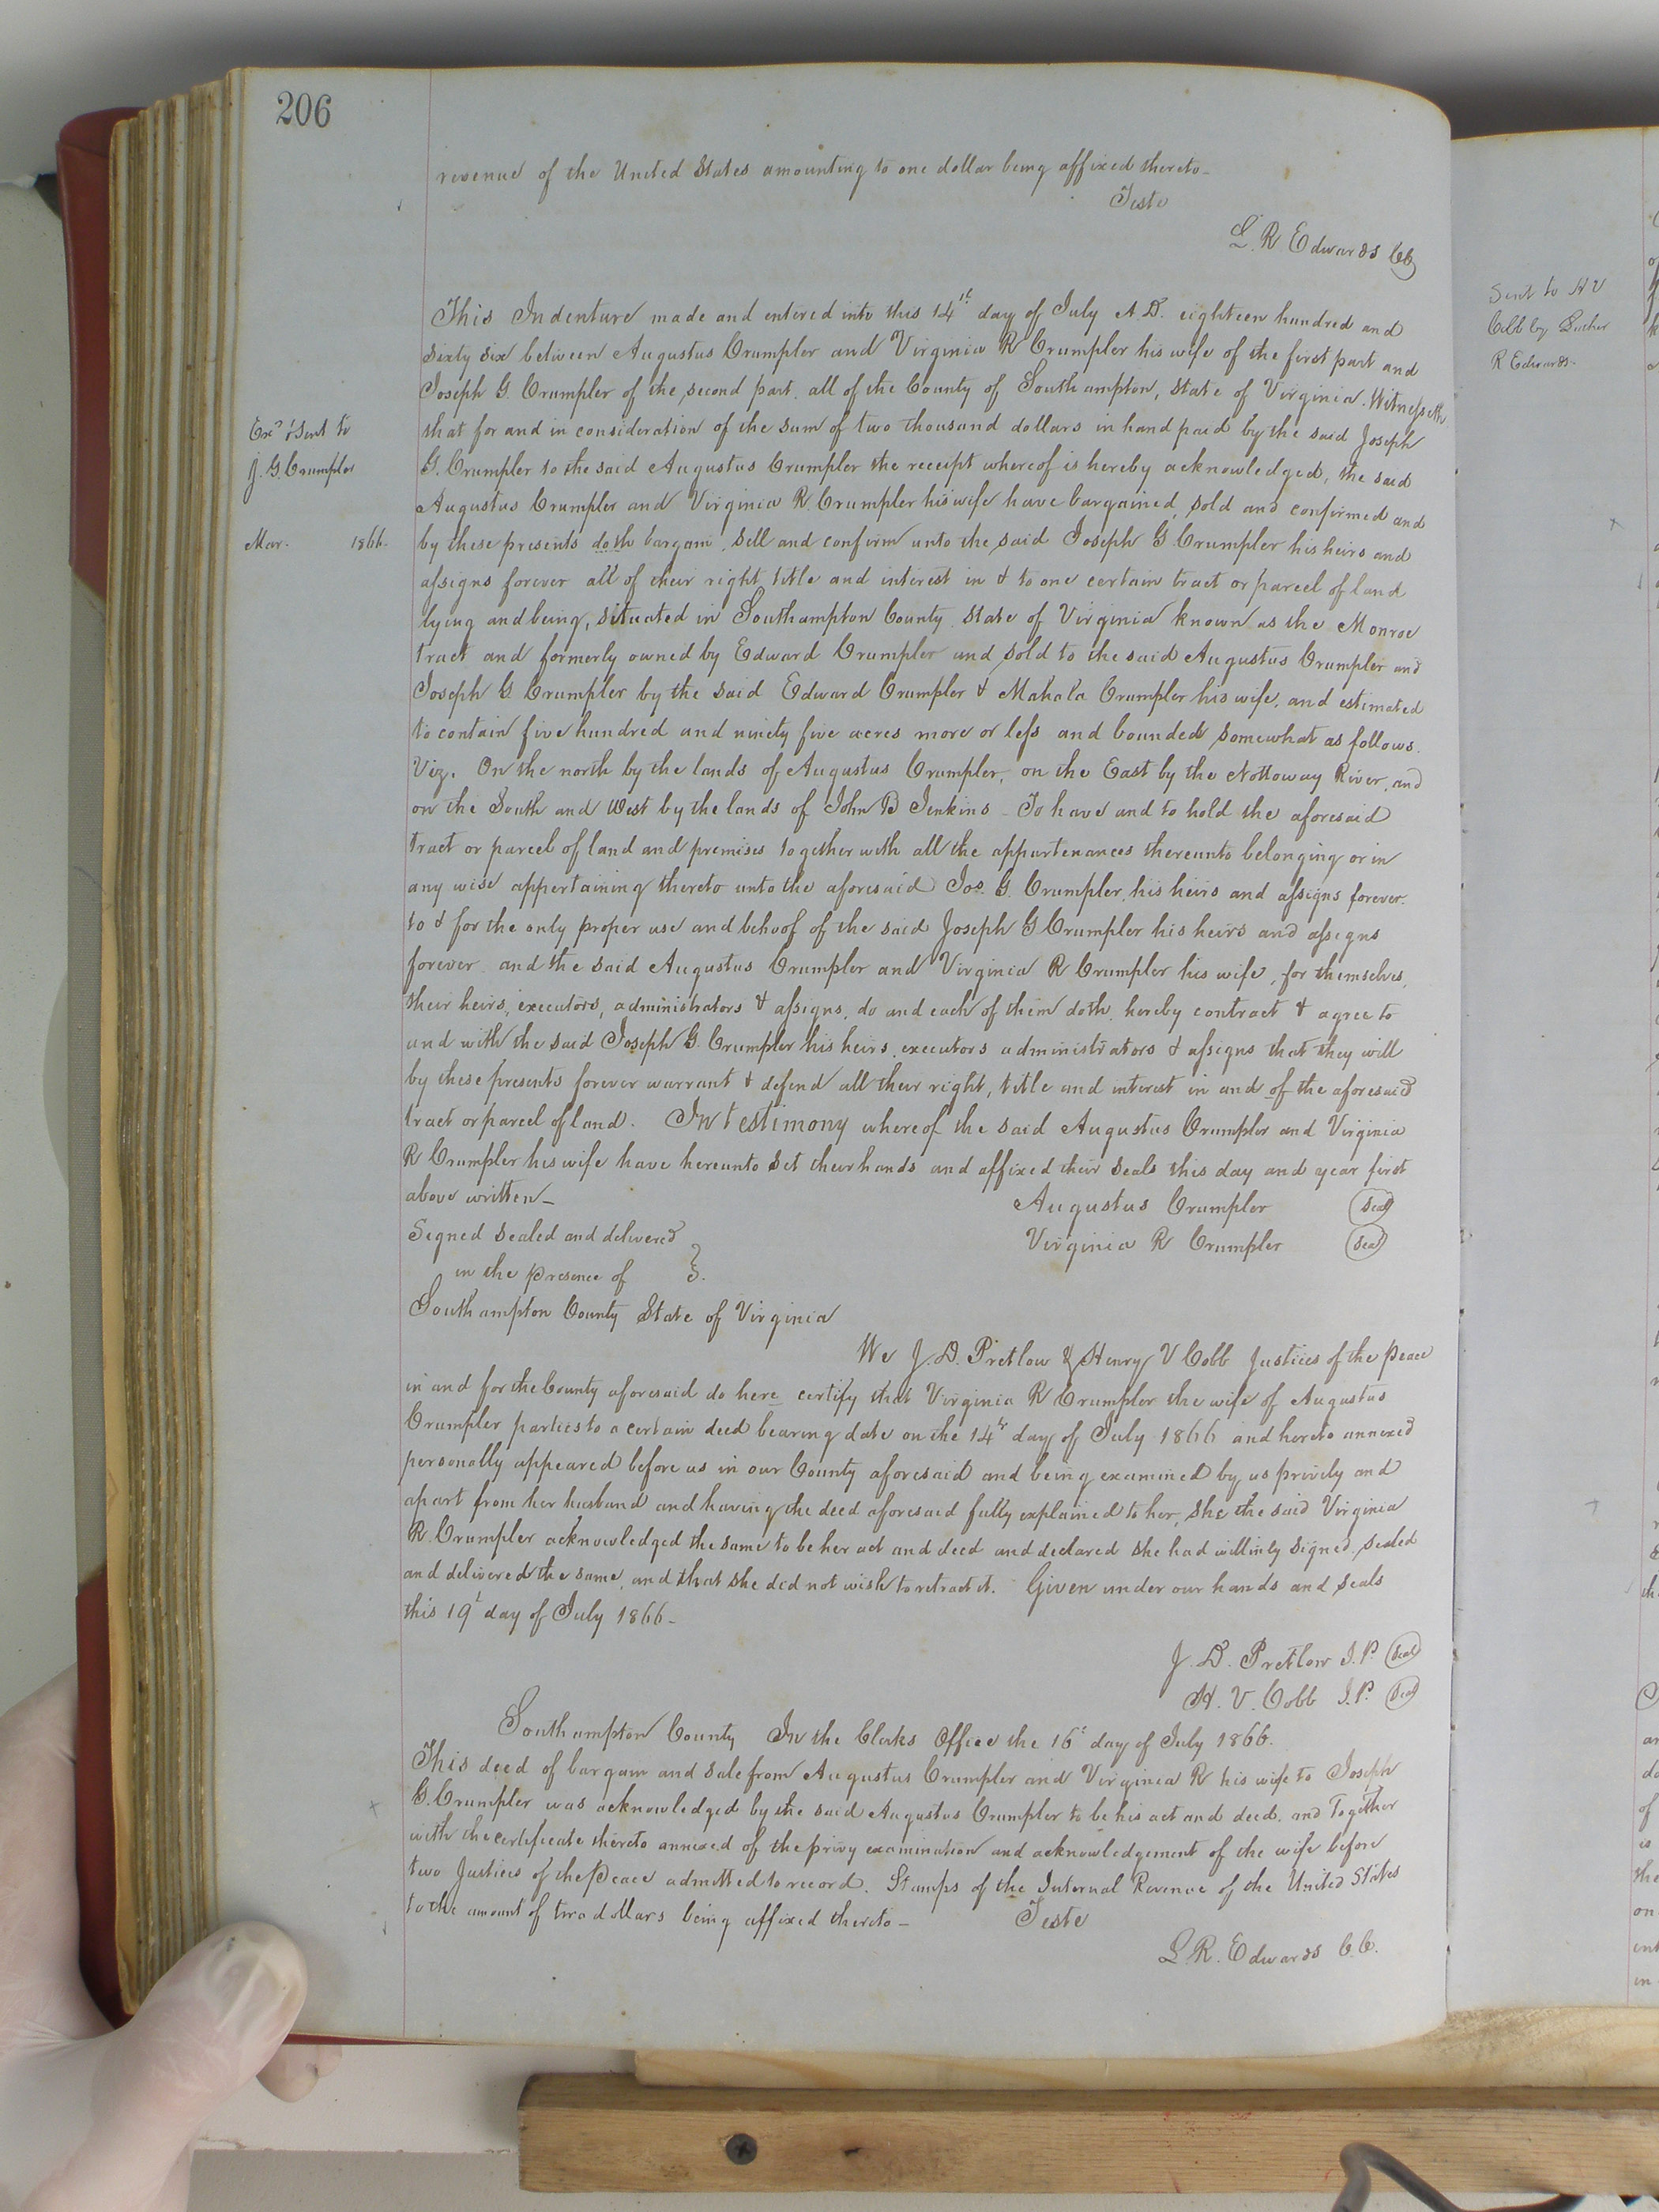 206
revenue of the United States amounting to one dollar being affixed thereto_
Teste
L. R Edwards CC
This Indenture made and entered into this 14th day of July A.D. eighteen hundred and
sixty six between Augustus Crumpler and Virginia R Crumpler his wife of the first part and
Joseph G. Crumpler of the second part, all of the County of Southampton, State of Virginia. Witnesseth
that for and in consideration of the sum of two thousand dollars in hand paid by the said Joseph
G. Crumpler to the said Augustus Crumpler the receipt whereof is hereby acknowledged, the said
Augustus Crumpler and Virginia R. Crumpler his wife have bargained, sold and confirmed and
by these presents doth bargain, sell and confirm unto the said Joseph G. Crumpler his heirs and
assigns forever all of their right title and interest in & to one certain tract or parcel of land
lying and being, situated in Southampton County State of Virginia known as the Monroe
tract and formerly owned by Edward Crumpler and sold to the said Augustus Crumpler and
Joseph G Crumpler by the said Edward Crumpler & Mahala Crumpler his wife, and estimated
to contain five hundred and ninety five acres more or less and bounded somewhat as follows.
Viz. On the north by the lands of Augustus Crumpler, on the East by the Nottoway River, and
on the South and West by the lands of John B Jenkins _ To have and to hold the aforesaid
tract or parcel of land and premises together with all the appurtenances thereunto belonging or in
any wise appertaining thereto unto the aforesaid Jos. G. Crumpler, his heirs and assigns forever.
to & for the only proper use and behoof of the said Joseph G Crumpler his heirs and assigns
forever and the said Augustus Crumpler and Virginia R Crumpler his wife, for themselves,
their heirs, executors, administrators & assigns, do and each of them doth hereby contract & agree to
and with the said Joseph G. Crumpler his heirs, executors administrators & assigns that they will
by these presents forever warrant & defend all their right, title and interest in and of the aforesaid
tract or parcel of land. In testimony whereof the said Augustus Crumpler and Virginia
R Crumpler his wife have hereunto set their hands and affixed their seals this day and year first
above written_
Augustus Crumpler Seal
Signed Sealed and delivered
Virginia R Crumpler Seal
in the presence of }.
Southampton County State of Virginia
We J. D. Pretlow & Henry V Cobb Justices of the peace
in and for the County aforesaid do here certify that Virginia R Crumpler the wife of Augustus
Crumpler parties to a certain deed bearing date on the 14th day of July 1866 and hereto annexed
personally appeared before us in our County aforesaid and being examined by us privily and
apart from her husband and having the deed aforesaid fully explained to her, she the said Virginia
R. Crumpler acknowledged the same to be her act and deed and declared she had willinly signed, sealed
and delivered the same, and that she did not wish to retract it. Given under our hands and seals
this 19t day of July 1866_
J. D. Pretlow J.P. Seal
H. V. Cobb J.P. Seal
Southampton County In the Clerks Office the 16t day of July 1866.
This deed of bargain and sale from Augustus Crumpler and Virginia R his wife to Joseph
G. Crumpler was acknowledged by the said Augustus Crumpler to be his act and deed, and Together
with the certificate thereto annexed of the privy examination and acknowledgement of the wife before
two Justices of the Peace admitted to record. Stamps of the Internal Revenue of the United States
to the amount of two dollars being affixed thereto _ Teste
L. R. Edwards C.C.
Exd & Sent to
J. G. Crumpler
Mar. 1866.
Sent to H V
Cobb by
R Edwards.